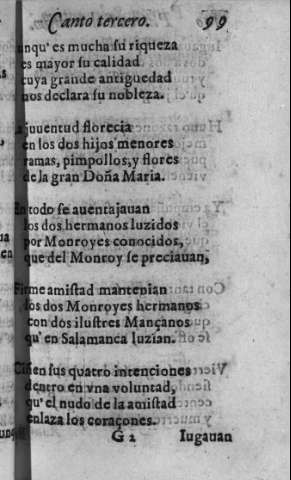 Canto tercero. 99
unqu' es mucha su riqueza
es mayor su calidad
cuya grande antiguedad
nos declara su nobleza.
a juuentud florecia
en los dos hijos menores
ramas, pimpollos, y flores
de la gran Doña Maria.
En todo se auentajauan
los dos hermanos luzidos
por Monroyes conocidos,
que del Monroy se preciauan,
Firme amistad mantenian
los dos Monroyes hermanos
con dos ilustres Mançanos
qu' en Salamanca luzian.
Ciñen sus quatro intenciones
dentro en vna voluntad,
qu' el nudo de la amistad
enlaza los coraçones.
G 2 Iugauan